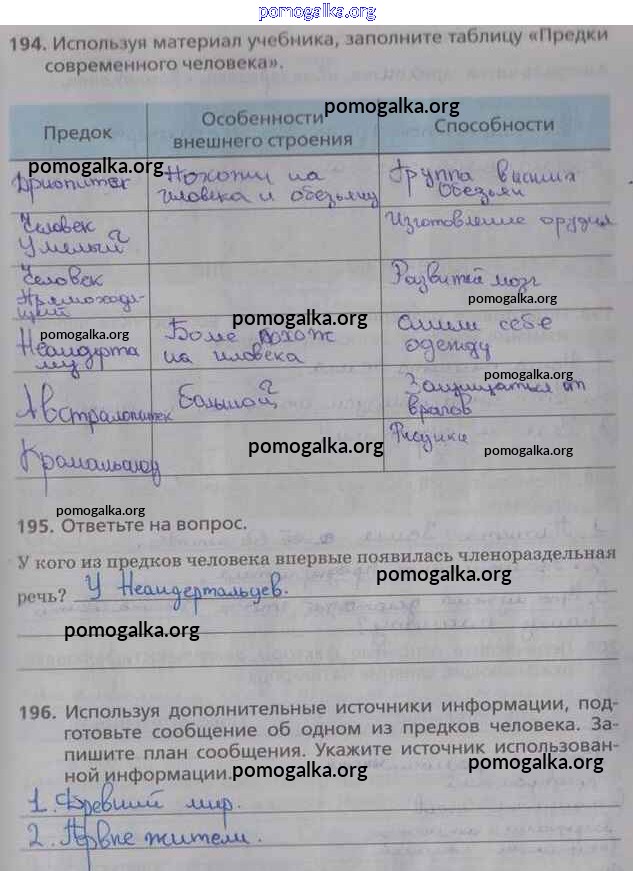 pomogalka.org
194. Используя материал учебника, заполните таблицу «Предки
современного человека».
pomogalka.org
Предок
Особенности
внешнего строения
Способности
pomogalka.org
Дриопитек
Похожи на
человека и обезьяну
Группа высших
Обезьян
Человек
Умелый
Изготовление орудия
Человек
Прямоходя-
щий
Развитей мозг
pomogalka.org
pomogalka.org
pomogalka.org
Неандерта
лец
Боле похож
на человека
Шили себе
одежду
pomogalka.org
Австралопитек
Большой
Защищаться от
врагов
Кроманьонец
Рисунки
pomogalka.org
pomogalka.org
pomogalka.org
195. Ответьте на вопрос.
У кого из предков человека впервые появилась членораздельная
речь? У Неандертальцев.
pomogalka.org
pomogalka.org
196. Используя дополнительные источники информации, под-
готовьте сообщение об одном из предков человека. За-
пишите план сообщения. Укажите источник использован-
ной информации.
pomogalka.org
pomogalka.org
1. Древний мир.
2. Првпе жители.